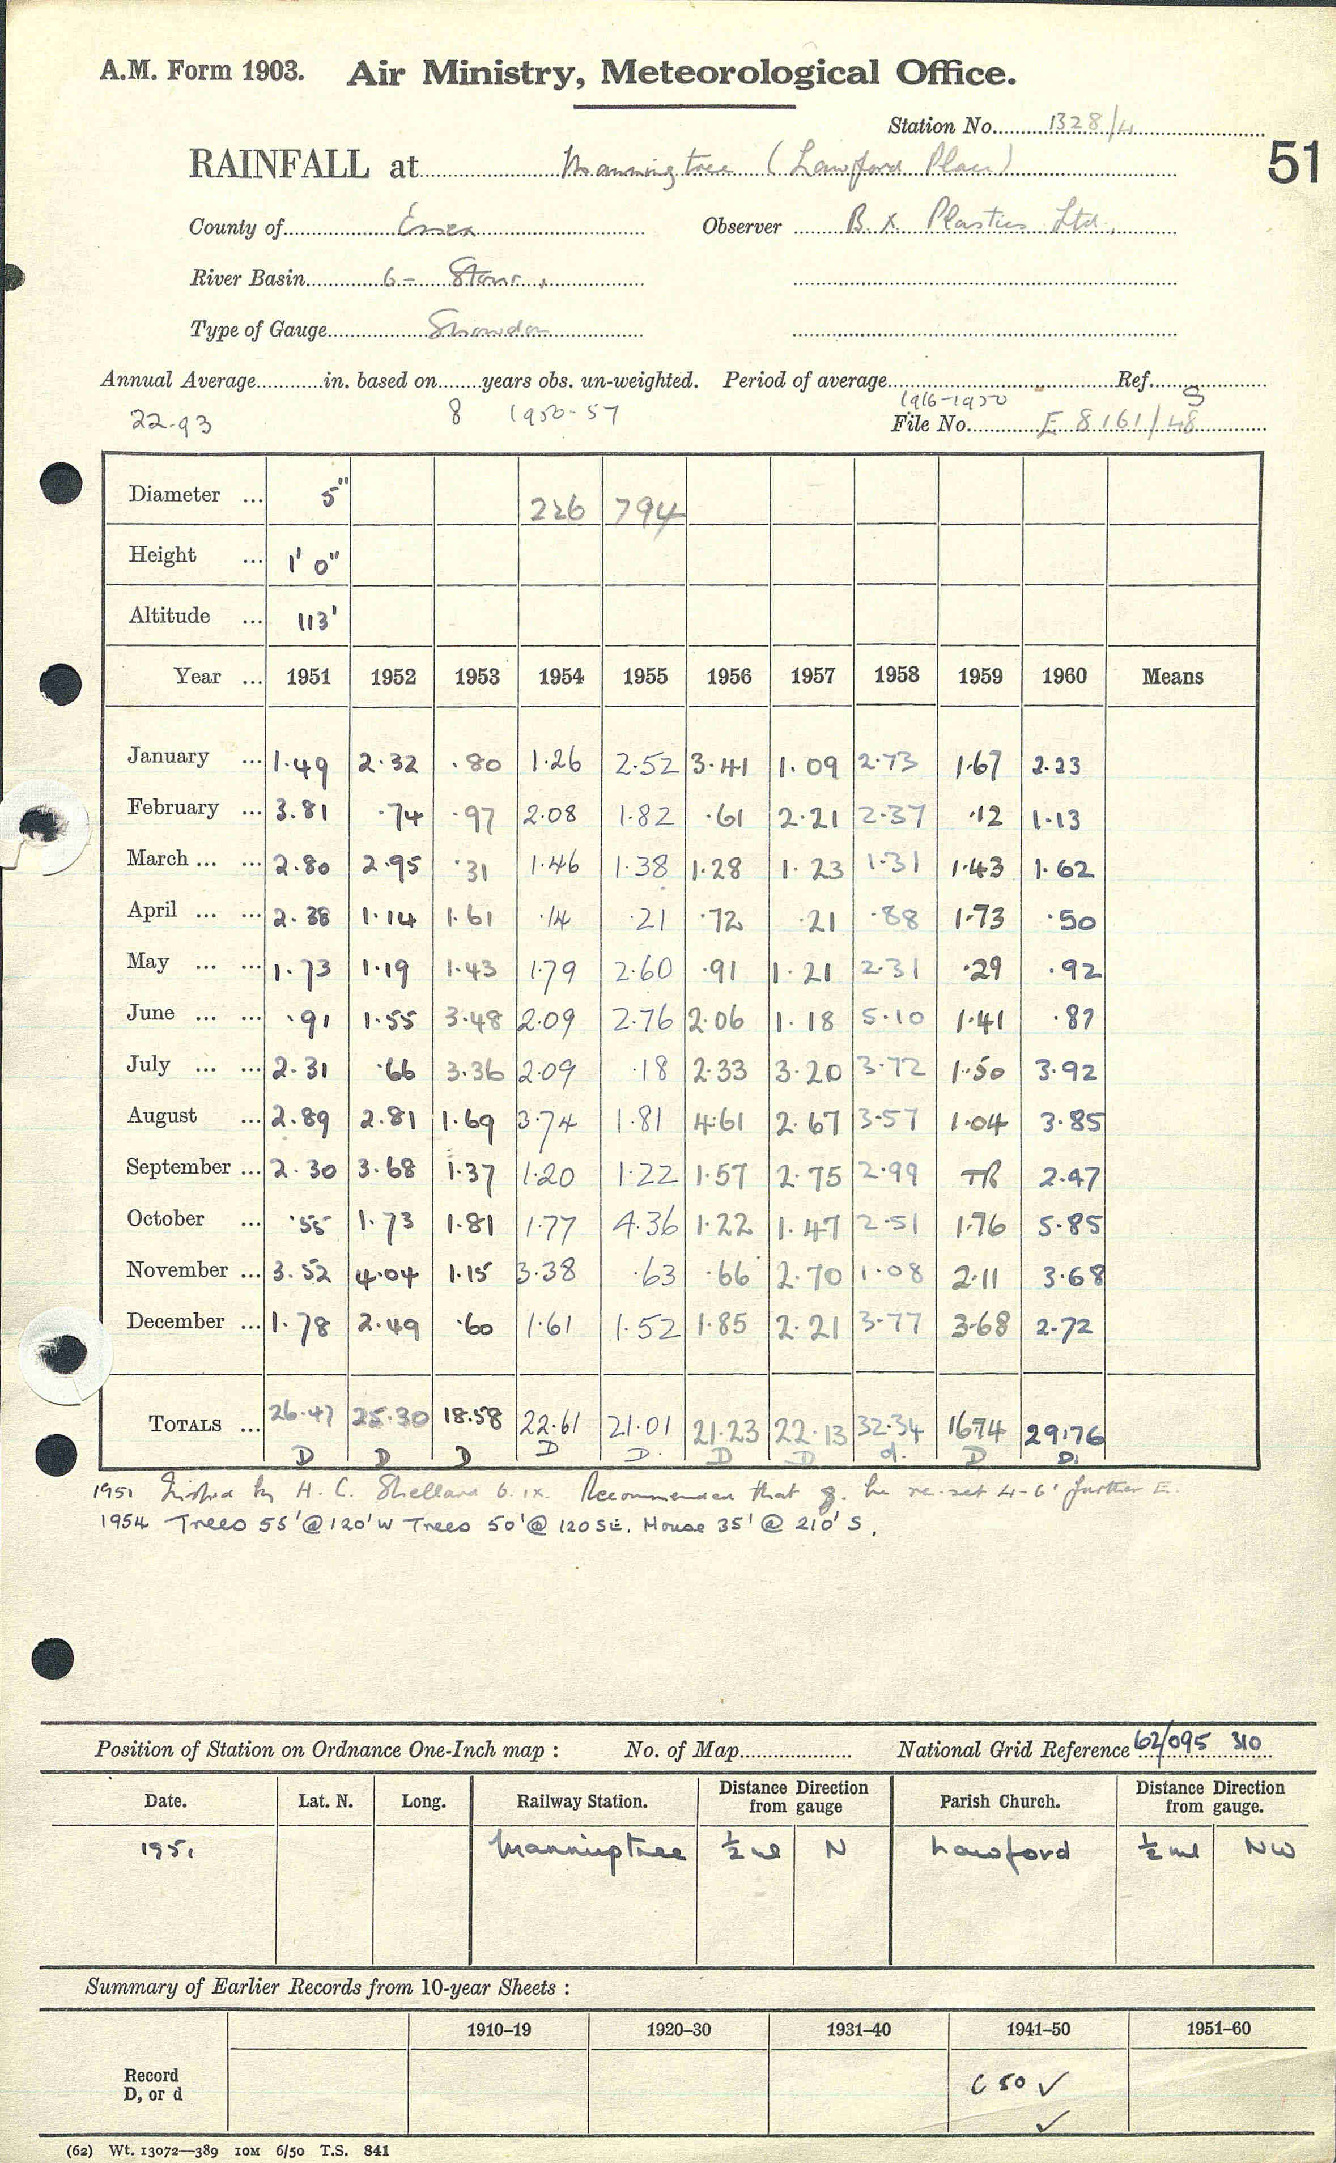 A.M. Form 1903. Air Ministry, Meteorological Office.
Station No. 1328/4
51
RAINFALL at Manningtree (Lawford Place)
County of Essex Observer B.X. Plastics Ltd.
River Basin 6 - Stour.
Type of Gauge Snowdon
Annual Average............in. based on........years obs. un-weighted. Period of average............Ref. S
22.93 8 1950-57 1916-1950
File No. E 8161/48
Diameter ... 5" 226 794
Height ... 1' 0"
Altitude ... 113'
Year ... 1951 1952 1953 1954 1955 1956 1957 1958 1959 1960 Means
January ... 1.49 2.32 .80 1.26 2.52 3.41 1.09 2.73 1.67 2.23
February ... 3.81 .74 .97 2.08 1.82 .61 2.21 2.37 .12 1.13
March ... ... 2.80 2.95 .31 1.46 1.38 1.28 1.23 1.31 1.43 1.62
April ... ... 2.38 1.14 1.61 .14 .21 .72 .21 .88 1.73 .50
May ... ... 1.73 1.19 1.43 1.79 2.60 .91 1.21 2.31 .29 .92
June ... ... .91 1.55 3.48 2.09 2.76 2.06 1.18 5.10 1.41 .87
July ... ... 2.31 .66 3.36 2.09 .18 2.33 3.20 3.72 1.50 3.92
August ... 2.89 2.81 1.69 3.74 1.81 4.61 2.67 3.57 1.04 3.85
September ... 2.30 3.68 1.37 1.20 1.22 1.57 2.75 2.99 TR 2.47
October ... .55 1.73 1.81 1.77 4.36 1.22 1.47 2.51 1.76 5.85
November ... 3.52 4.04 1.15 3.38 .63 .66 2.70 1.08 2.11 3.68
December ... 1.78 2.49 .60 1.61 1.52 1.85 2.21 3.77 3.68 2.72
TOTALS ... 26.47 25.30 18.58 22.61 21.01 21.23 22.13 32.34 16.74 29.76
D D D D D. D D d. D D.
1951 Insp'd by H. C. Shellard 6.ix. Recommended that g. be re-set 4-6' further E.
1954 Trees 55'@120'W Trees 50'@ 120 SE. House 35' @ 210' S.
Position of Station on Ordnance One-Inch map : No. of Map.................... National Grid Reference 62/095 310
Date. Lat. N. Long. Railway Station. Distance Direction from gauge Parish Church. Distance Direction from gauge.
1951 Manningtree ½ ml N Lawford ½ ml NW
Summary of Earlier Records from 10-year Sheets :
1910–19 1920–30 1931–40 1941–50 1951–60
Record D, or d C 50 ✓
✓
(62) Wt. 13072—389 10M 6/50 T.S. 841